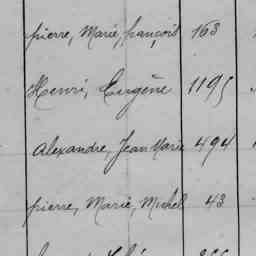 pierre, Marie, françois 163
Henri, Eugène 1195
Alexandre, Jean Marie 494
pierre, Marie, Michel 43